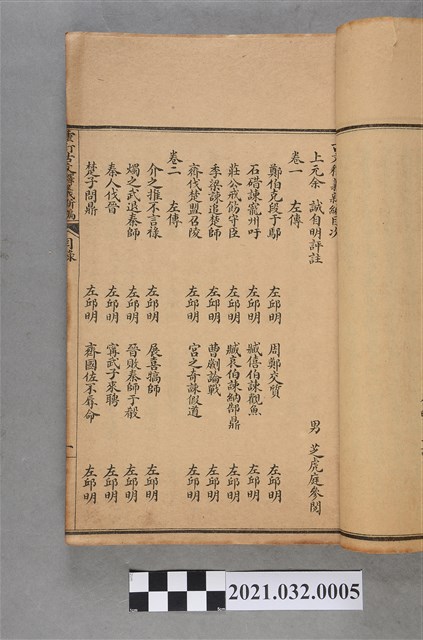 古文釋義新編目次
上元余 誠自明評註 男 芝虎庭參閱
卷一 左傳
鄭伯克段于鄢 左邱明 周鄭交質 左邱明
石碏諫寵州吁 左邱明 臧僖伯諫觀魚 左邱明
莊公戒飭守臣 左邱明 臧哀伯諫納郜鼎 左邱明
季梁諫追楚師 左邱明 曹劌論戰 左邱明
齊伐楚盟召陵 左邱明 宮之奇諫假道 左邱明
卷二 左傳
介之推不言祿 左邱明 展喜犒師 左邱明
燭之武退秦師 左邱明 晉敗秦師于殽 左邱明
秦人伐晉 左邱明 甯武子來聘 左邱明
楚子問鼎 左邱明 齊國佐不辱命 左邱明
重訂古文釋義新編 目錄 一
2021.032.0005